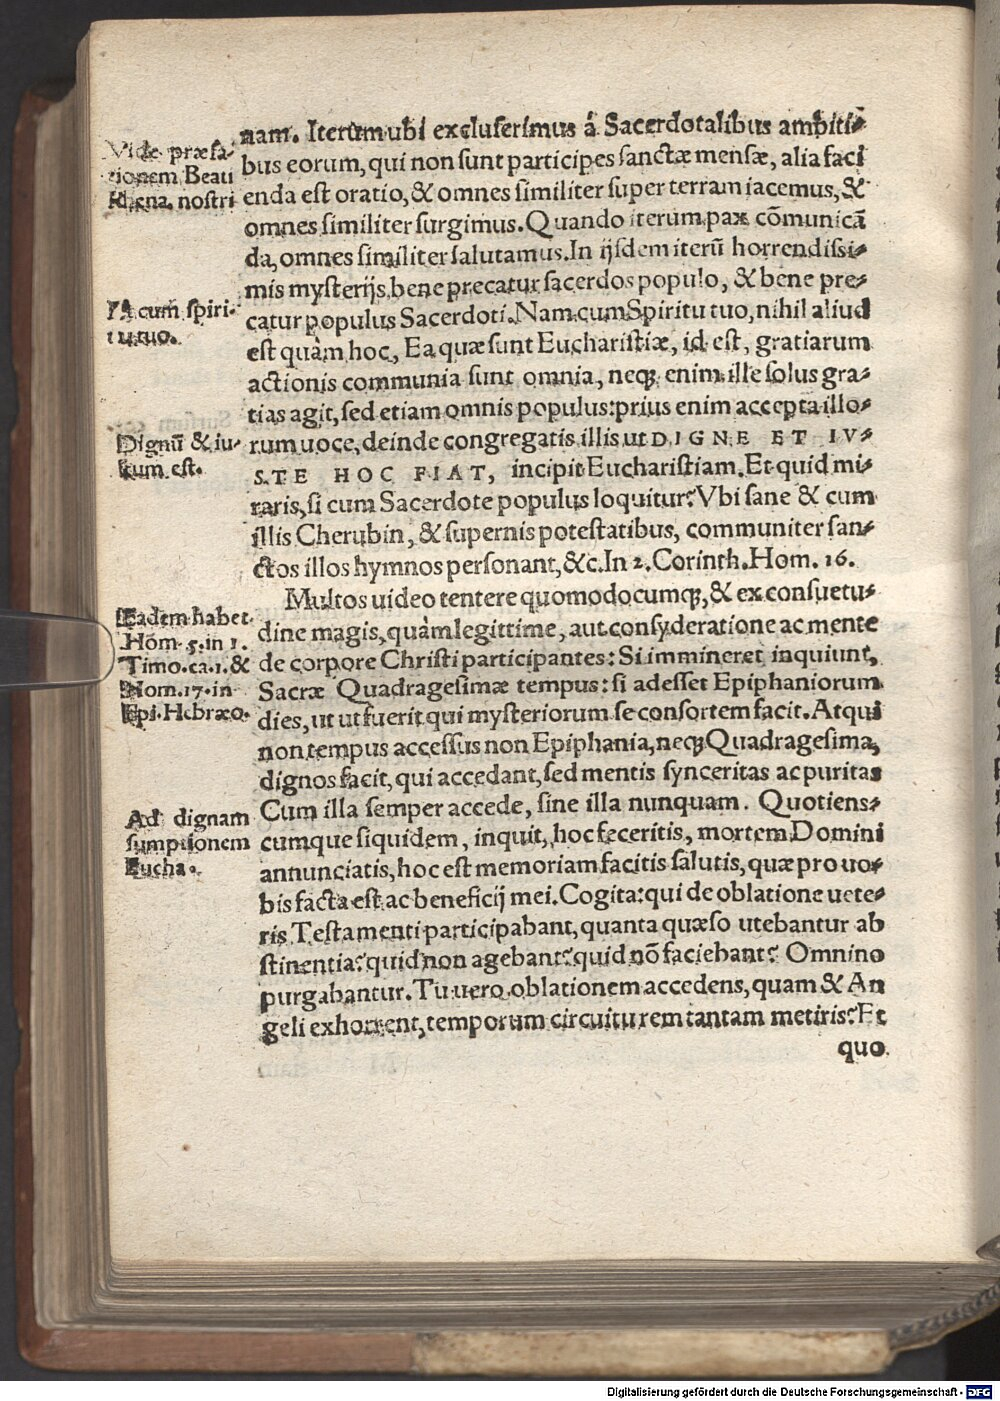 nam. Iterum ubi excluserimus á Sacerdotalibus ambiti⸗
bus eorum, qui non sunt participes sanctæ mensæ, alia faci
enda est oratio, & omnes similiter super terram iacemus, &
omnes similiter surgimus. Quando iterum pax cōmunicā
da, omnes similiter salutamus. In ijsdem iterū horrendissi⸗
mis mysterijs bene precatur sacerdos populo, & bene pre⸗
catur populus Sacerdoti. Nam cum Spiritu tuo, nihil aliud
est quàm hoc, Ea quæ sunt Eucharistiæ, id est, gratiarum
actionis communia sunt omnia, neq; enim ille solus gra⸗
tias agit, sed etiam omnis populus: prius enim accepta illo⸗
rum uoce, deinde congregatis illis ut DIGNE ET IV⸗
STE HOC FIAT, incipit Eucharistiam. Et quid mi⸗
raris, si cum Sacerdote populus loquitur? Vbi sane & cum
illis Cherubin, & supernis potestatibus, communiter san⸗
ctos illos hymnos personant, &c. In 2. Corinth. Hom. 16.
Multos uideo tentere quomodocumq;, & ex consuetu⸗
dine magis, quàm legittime, aut consyderatione ac mente
de corpore Christi participantes: Si immineret inquiunt,
Sacræ Quadragesimæ tempus: si adesset Epiphaniorum
dies, ut ut fuerit qui mysteriorum se consortem facit. Atqui
non tempus accessus non Epiphania, neq; Quadragesima,
dignos facit, qui accedant, sed mentis synceritas ac puritas
Cum illa semper accede, sine illa nunquam. Quotiens⸗
cumque siquidem, inquit, hoc feceritis, mortem Domini
annunciatis, hoc est memoriam facitis salutis, quæ pro uo⸗
bis facta est ac beneficij mei. Cogita: qui de oblatione uete⸗
ris Testamenti participabant, quanta quæso utebantur ab
stinentia? quid non agebant? quid nō faciebant? Omnino
purgabantur. Tu uero oblationem accedens, quam & An
geli exhorrent, temporum circuitu rem tantam metiris? Et
quo
Vide præfa⸗
tionem Beati
Rhena. nostri
Et cum spiri⸗
tu tuo.
Dignū & iu⸗
stum est.
Eadem habet
Hom. 5. in 1.
Timo. ca. 1. &
Hom. 17. in
Epi. Hebræo.
Ad dignam
sumptionem
Eucha.
Digitalisierung gefördert durch die Deutsche Forschungsgemeinschaft - DFG